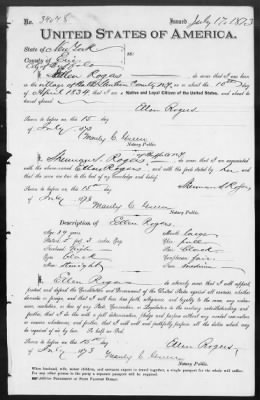 No. 34048 Issued July 17, 1873
UNITED STATES OF AMERICA.
State of New York
County of Erie
City of Buffalo
I, Ellen Rogers do swear that I was born
in the village of County N.Y. on the 10th day
of April 1834 that I am a Native and Loyal Citizen of the United States, and about to
travel abroad
Ellen Rogers
Sworn to before me this 15 day
of July 1873
Manly C. Green
Notary Public.
I, Sherman S. Rogers, of Buffalo N.Y. do swear that I am acquainted
with the above-named Ellen Rogers, and with the facts stated by her and that
the same are true to the best of my knowledge and belief.
Sherman S. Rogers
Sworn to before me this 15th day
of July 1873
Manly C. Green
Notary Public.
Description of Ellen Rogers.
Age 39 years Mouth large
Stature 5 feet 3 inches, Eng. Chin full
Forehead high Hair Black
Eyes black Complexion fair
Nose straight Face medium
I, Ellen Rogers do solemnly swear that I will support,
protect and defend the Constitution and Government of the United States against all enemies, whether
domestic or foreign; and that I will bear true faith, allegiance and loyalty to the same, any ordinance,
resolution, or law of any State, Convention, or Legislature to the contrary notwithstanding; and
further, that I do this with a full determination, pledge and purpose, without any mental reservation
or evasion whatsoever; and further, that I will well and faithfully perform all the duties which may
be required of me by law. So help me God.
Ellen Rogers
Sworn to before me this 15th day
of July 1873
Manly C. Green
Notary Public.
When husband, wife, minor children, and servants expect to travel together, a single passport for the whole will suffice.
For any other person in the party a separate passport will be required.
Address Department of State Passport Bureau.